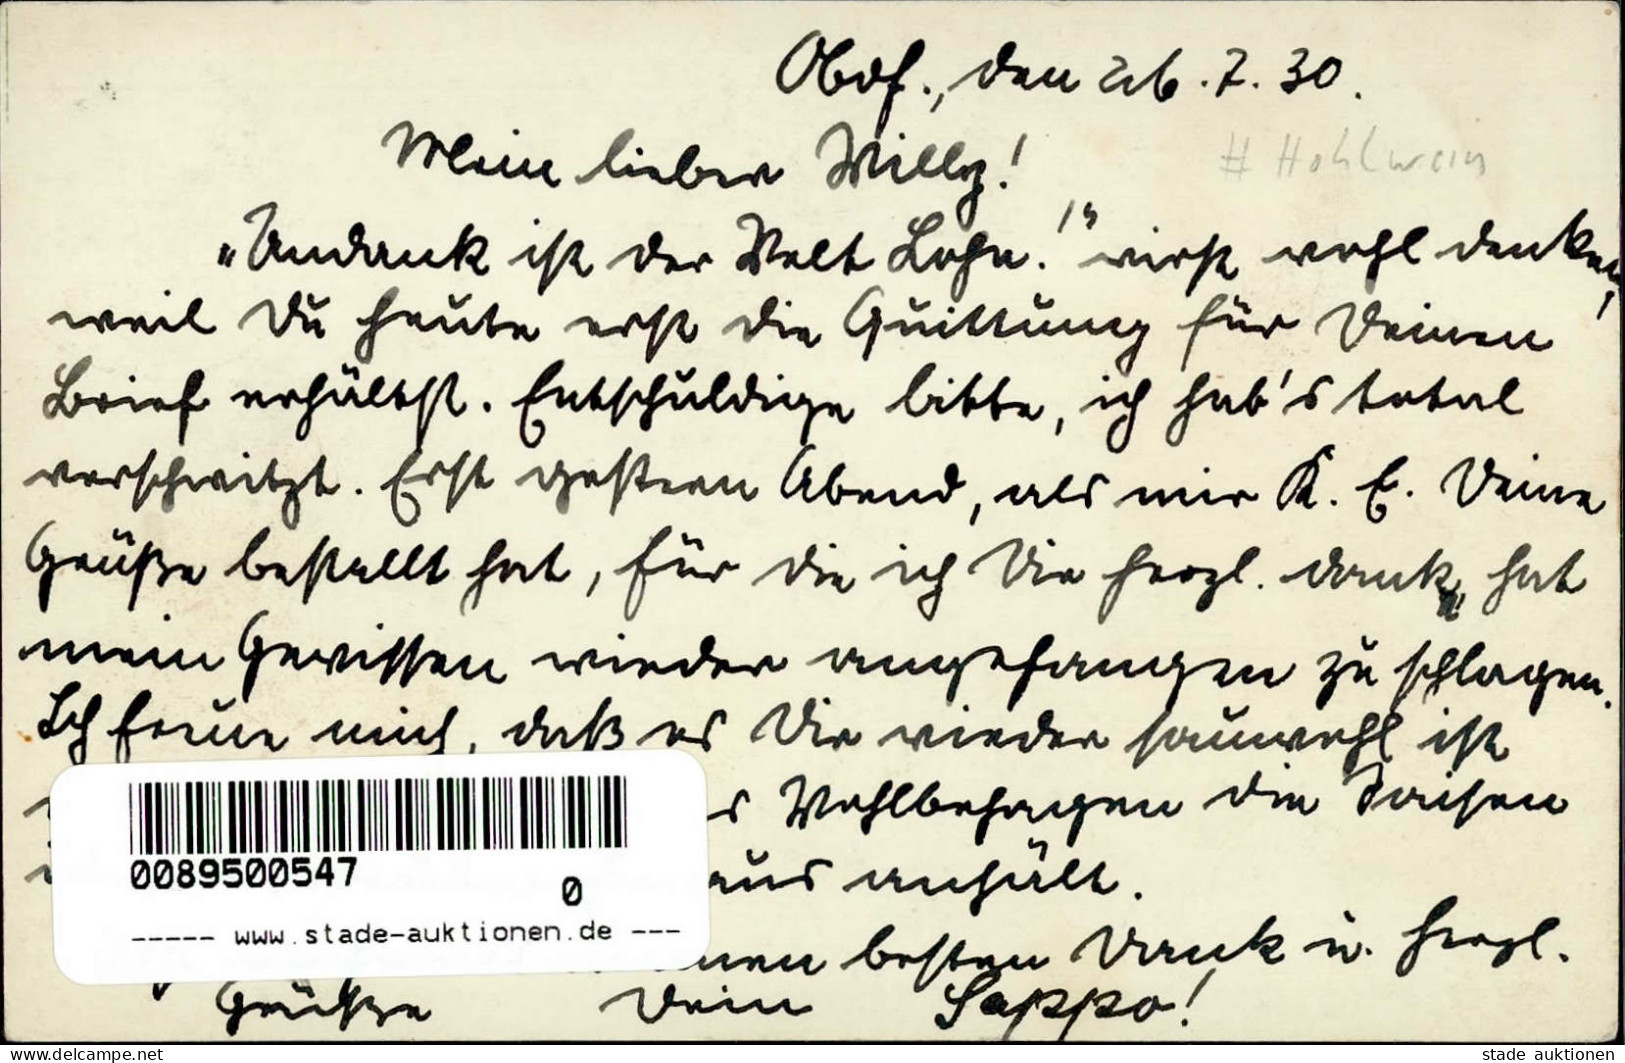 Obdf., den 26.7.30.
# Hohlwein
Mein lieber Willy!
„Undank ist der Welt Lohn!“ wirst wohl denken,
weil Du heute erst die Quittung für Deinen
Brief erhältst. Entschuldige bitte, ich hab's total
verschwitzt. Erst gestern Abend, als mir K. E. Deine
Grüße bestellt hat, für die ich Dir herzl. danke, hat
mein Gewissen wieder angefangen zu schlagen.
Ich freue mich, daß es Dir wieder sauwohl ist
Wohlbehagen die Saison
aus anhält.
besten Dank u. herzl.
Grüße Dein Sappo!
0089500547
0
----- www.stade-auktionen.de ---
www.delcampe.net
stade auktionen